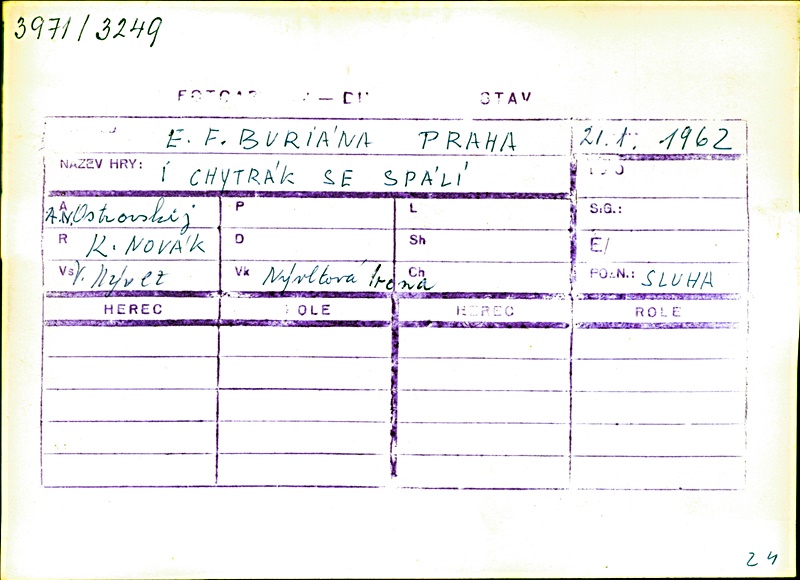 3971/3249
E. F. BURIÁNA PRAHA 21. 1. 1962
NÁZEV HRY: I CHYTRÁK SE SPÁLÍ
A A.N. Ostrovskij P L SIG.:
R K. NOVÁK D Sh E/
Vs V. Nývlt Vk Nývltová Irena Ch POZN.: SLUHA
HEREC ROLE HEREC ROLE
24